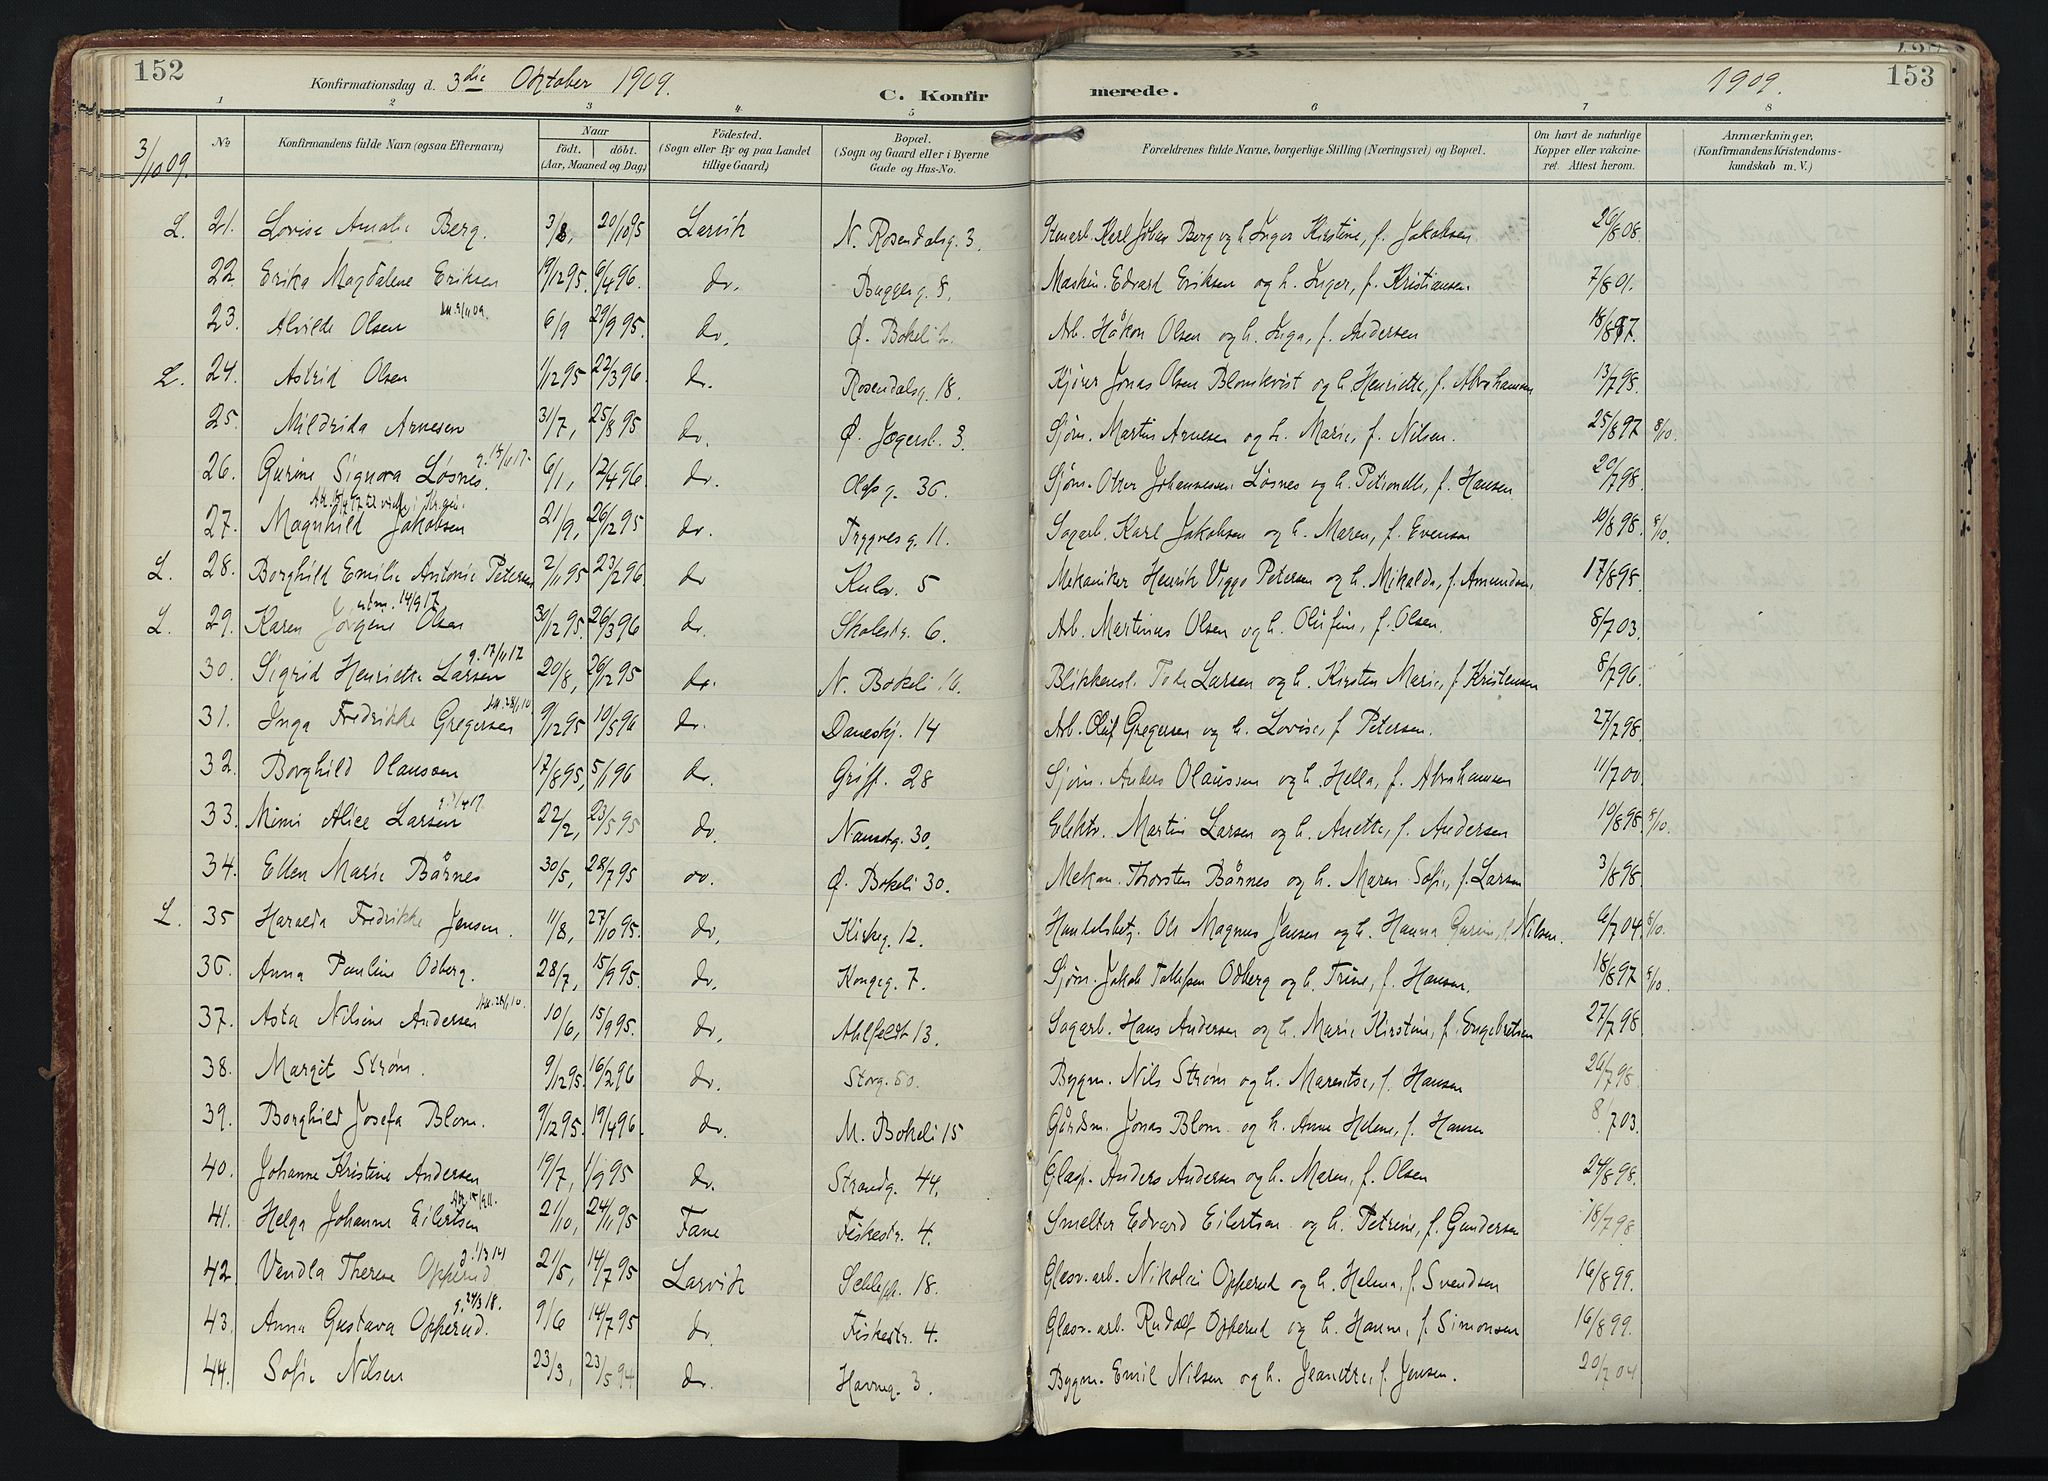 152
Konfirmationsdag d. 3die Oktober 1909.
C. Konfirmerede.
1909.
153
1 2 3 4 5 6 7 8
3/10 09.
No
Konfirmandens fulde Navn (ogsaa Efternavn)
Naar født. døbt. (Aar, Maaned og Dag)
Födested. (Sogn eller By og paa Landet tillige Gaard)
Bopæl. (Sogn og Gaard eller i Byerne Gade og Hus-No.
Forældrenes fulde Navne, borgerlige Stilling (Næringsvei) og Bopæl.
Om havt de naturlige Kopper eller vakcineret. Attest herom.
Anmærkninger. (Konfirmandens Kristendomskundskab m. V.)
L. 21. Lovise Amalie Berg. 3/8, 20/10 95 Larvik N. Rosendalsg. 3. Karl Johan Berg og h. Inger Kirstine, f. Jakobsen 26/8 08.
22. Erika Magdalene Eriksen 19/12 95. 6/4 96. do. Buggesg. 8. Maskin. Edvard Eriksen og h. Inger, f. Kristiansen. 7/8 01.
23. Alvilde Olsen 6/9 29/9 95. do. Ø. Bokeli 2. Arb. Håkon Olsen og h. Inga, f. Andersen 18/8 97.
L. 24. Astrid Olsen 1/12 95 22/3 96. do. Rosendalsg. 18. Kjører Jonas Olsen Blomkvist og h. Henriette, f. Abrahamsen 13/7 98.
25. Mildrida Arnesen 31/7, 25/8 95 do. Ø. Jegersb. 3. Sjøm. Martin Arnesen og h. Marie, f. Nilsen. 25/8 97 8/10.
26. Gurine Signora Løsnes. g. 18/11 17. 6/1, 12/4 96. do. Olafsg. 36. Sjøm. Otter Johannessen Løsnes og h. Petronelle, f. Hansen 20/7 98.
27. Magnhild Jakobsen 21/9, 26/12 95 do. Trygvesg. 11. Sagarb. Karl Jakobsen og h. Maren, f. Evensen 10/8 98. 8/10.
L. 28. Borghild Emilie Antonie Petersen 2/11 95 23/2 96. do Kulv. 5 Mekaniker Henrik Viggo Petersen og h. Mikalda, f. Amundsen. 17/8 98.
L. 29. Karen Jørgine Olsen 14/9 17 30/12 95. 26/3 96 do. Skolestr. 6. Arb. Martinus Olsen og h. Olufine, f. Olsen. 8/7 03.
30. Sigrid Henriette Larsen g. 17/11 17 20/8, 26/12 95 do. N. Bokeli 16. Blikkensl. Larsen og h. Kirsten Marie, f. Kristensen 8/7 96.
31. Inga Fredrikke Gregersen Att. 28/1 10 9/12 95 10/5 96 do. Daneskj. 14 Arb. Oluf Gregersen og h. Lovise, f. Petersen. 27/7 98.
32. Borghild Olaussen 17/8 95, 5/1 96 do. Griff. 28 Sjøm. Anders Olaussen og h. Hella, f. Abrahamsen 11/7 00.
33. Mimi Alice Larsen 22/2, 23/5 95 do. Nansetg. 30. Elektr. Martin Larsen og h. Anette, f. Andersen 10/8 98 8/10.
34. Ellen Marie Bårnes 30/5, 28/7 95 do. Ø. Bokeli 30. Mekan. Thorsten Bårnes og h. Maren Sofie, f. Larsen 3/8 98.
L. 35 Haralda Fredrikke Jensen. 11/8, 27/10 95. do. Kirkeg. 12. Handelsbetj. Ole Magnus Jensen og h. Hanna Gurine, f. Nilsen. 6/7 04. 8/10.
36. Anna Pauline Odberg. 28/7, 15/9 95. do. Kongeg. 7. Sjøm. Jakob Tollefsen Odberg og h. Trine, f. Hansen. 18/8 97 8/10.
37. Asta Nilsine Andersen Att. 28/1 10. 10/6, 15/9 95. do. Ahlfeldt 13. Sagarb. Hans Andersen og h. Marie Kirstine, f. Engebretsen 27/7 98.
38. Margit Strøm. 9/12 95. 16/2 96 do. Storg. 60. Bygm. Nils Strøm og h. Marentse, f. Hansen 26/7 98.
39. Borghild Josefa Blom. 9/12 95. 19/4 96. do. M. Bokeli 15 Gårdsm. Jonas Blom og h. Anne Helene, f. Hansen 8/7 03.
40. Johanne Kristine Andersen 19/7, 1/9 95 do. Strandg. 44. Glasp. Anders Andersen og h. Maren, f. Olsen 24/8 98.
41. Helga Johanne Eilertsen 21/10, 24/11 95 Fane Fiskestr. 4. Smelter Edvard Eilertsen og h. Petrine, f. Gundersen 18/7 98
42. Vendla Therese Opperud 21/5, 14/7 95 Larvik Schleph. 18. Glasv.arb. Nikolai Opperud og h. Helena, f. Svendsen 16/8 99.
43. Anna Gustava Opperud. g. 24/3 18. 9/6 14/7 95 do Fiskestr. 4. Glasv.arb. Rudolf Opperud og h. Hanna, f. Simonsen 16/8 99.
44. Sofie Nilsen 23/3, 23/5 94 do. Havneg. 3. Bygm. Emil Nilsen og h. Jeanette, f. Jensen. 20/7 04